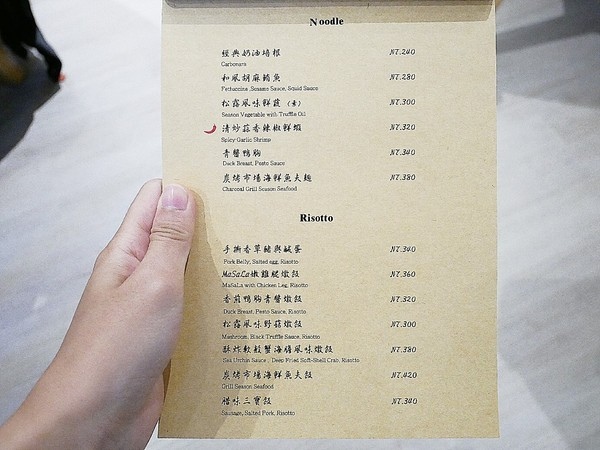 Noodle
經典奶油培根 NT.240
Carbonara
和風胡麻鱆魚 NT.280
Fettuccina ,Sesame Sauce, Squid Sauce
松露風味鮮菇（素） NT.300
Season Vegetable with Truffle Oil
清炒蒜香辣椒鮮蝦 NT.320
Spicy Garlic Shrimp
青醬鴨胸 NT.340
Duck Breast, Pesto Sauce
炭烤市場海鮮魚夫麵 NT.380
Charcoal Grill Season Seafood
Risotto
手撕香草豬與鹹蛋 NT.340
Pork Belly, Salted egg, Risotto
MaSaLa嫩雞腿燉飯 NT.360
MaSaLa with Chicken Leg, Risotto
香煎鴨胸青醬燉飯 NT.320
Duck Breast, Pesto Sauce, Risotto
松露風味野菇燉飯 NT.300
Mushroom, Black Truffle Sauce, Risotto
酥炸軟殼蟹海膽風味燉飯 NT.380
Sea Urchin Sauce , Deep Fried Soft-Shell Crab, Risotto
炭烤市場海鮮魚夫飯 NT.420
Grill Season Seafood
臘味三寶飯 NT.340
Sausage, Salted Pork, Risotto